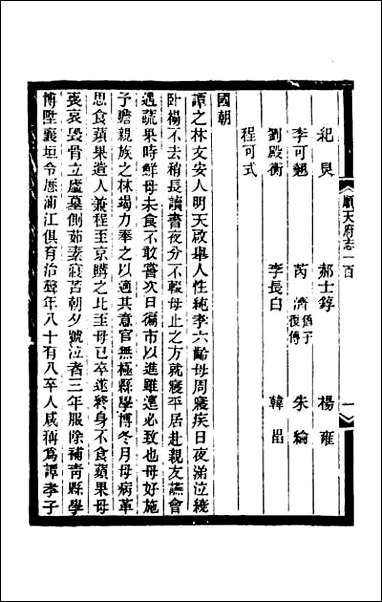 紀炅 郝士錞 楊雍
順天府志一百 一
李可𩗗 芮濟 係子復傳 朱綸
劉殿衡 李長白 韓昌
程可式
國朝
譚之林文安人明天啟舉人性純孝六齡母周寢疾日夜涕泣繞
臥榻不去稍長讀書夜分不輟母止之方就寢平居赴親友讌會
遇蔬果時鮮母未食不敢嘗次日徧市以進雖遠必致也母好施
予贍親族之林竭力奉之以適其意官無極縣學博冬月母病革
思食蘋果遣人兼程至京購之比至母已卒遂終身不食蘋果母
喪哀毀骨立廬墓側茹素寢苫朝夕號泣者三年服除補青縣學
博陞襄垣令歷浦江俱有治聲年八十有八卒人咸稱爲譚孝子